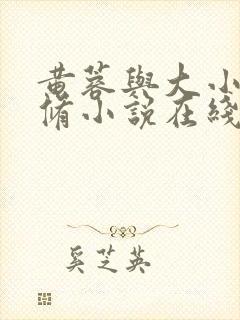 黄蓉與大小
脩小說在綫
奚芝英